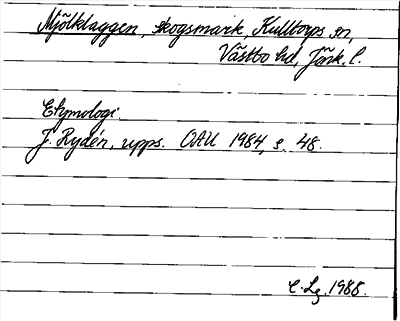 Mjölklaggen, skogsmark, Kulltorps sn,
Västbo hd, Jönk. l.
Etymologi:
J. Rydén, upps. OAU 1984, s. 48.
C. Lg. 1988.